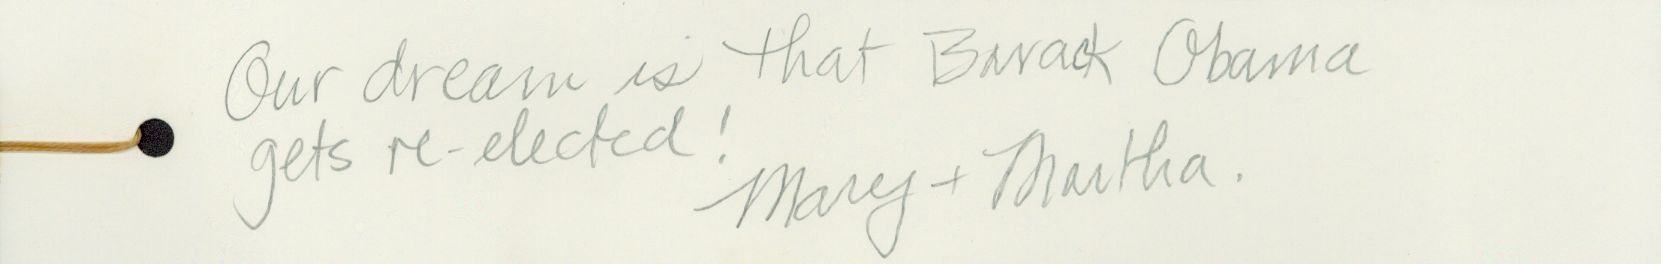 Our dream is that Barack Obama
gets re-elected!
Mary + Martha.